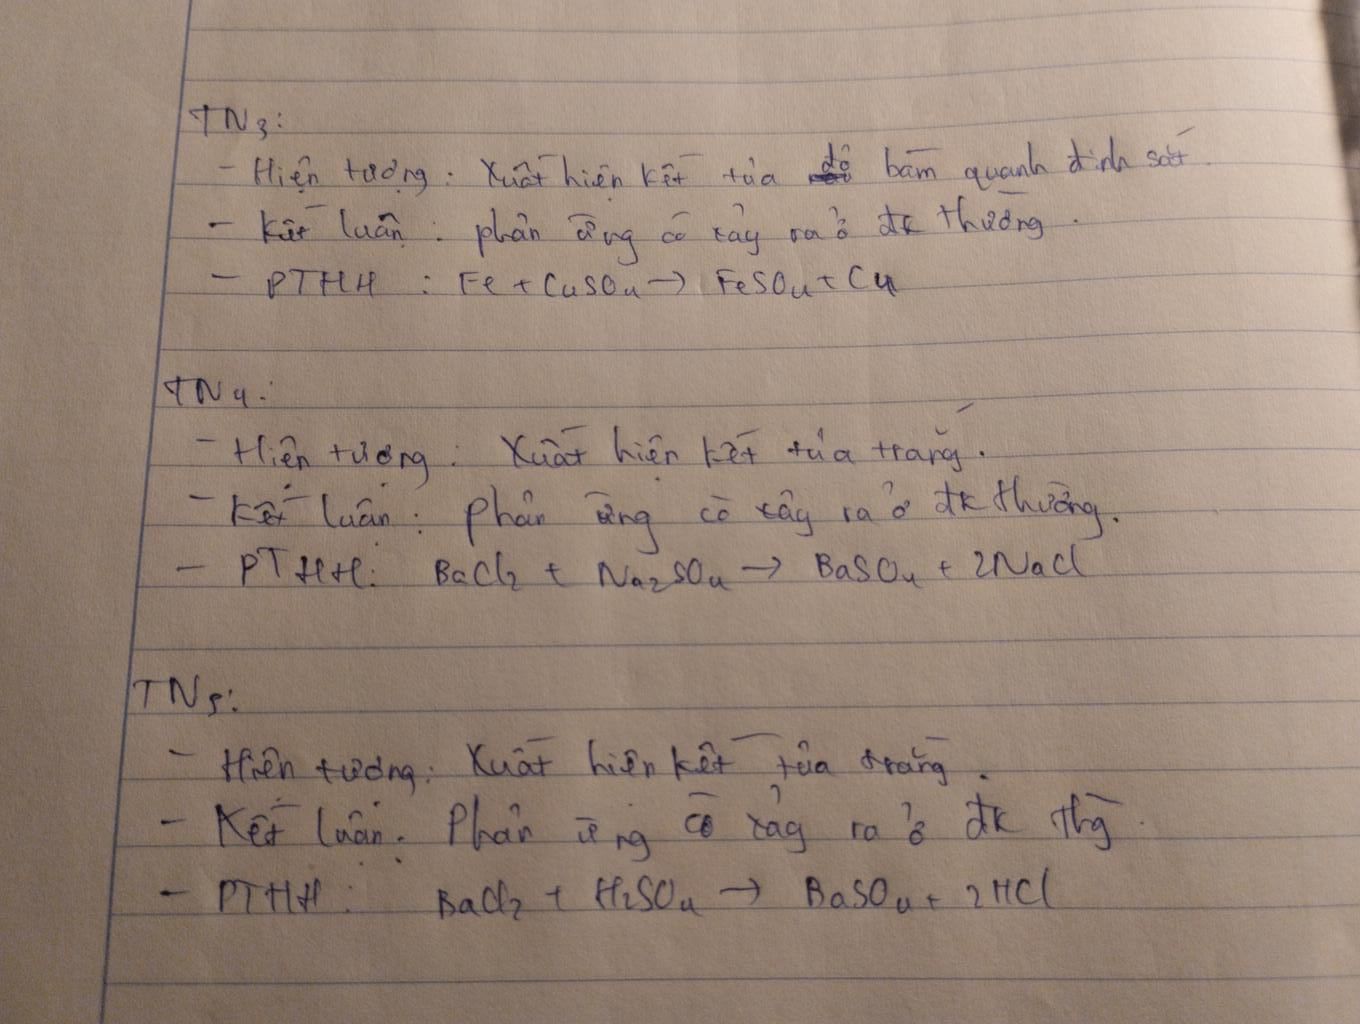 TN3:
- Hiện tượng: Xuất hiện kết tủa đỏ bám quanh đinh sắt.
- Kết luận: phản ứng có xảy ra ở đk thường.
- PTHH: Fe + CuSO4 → FeSO4 + Cu
TN4:
- Hiện tượng: Xuất hiện kết tủa trắng.
- Kết luận: phản ứng có xảy ra ở đk thường.
- PTHH: BaCl2 + Na2SO4 → BaSO4 + 2NaCl
TN5:
- Hiện tượng: Xuất hiện kết tủa trắng.
- Kết luận: Phản ứng có xảy ra ở đk thg
- PTHH: BaCl2 + H2SO4 → BaSO4 + 2HCl